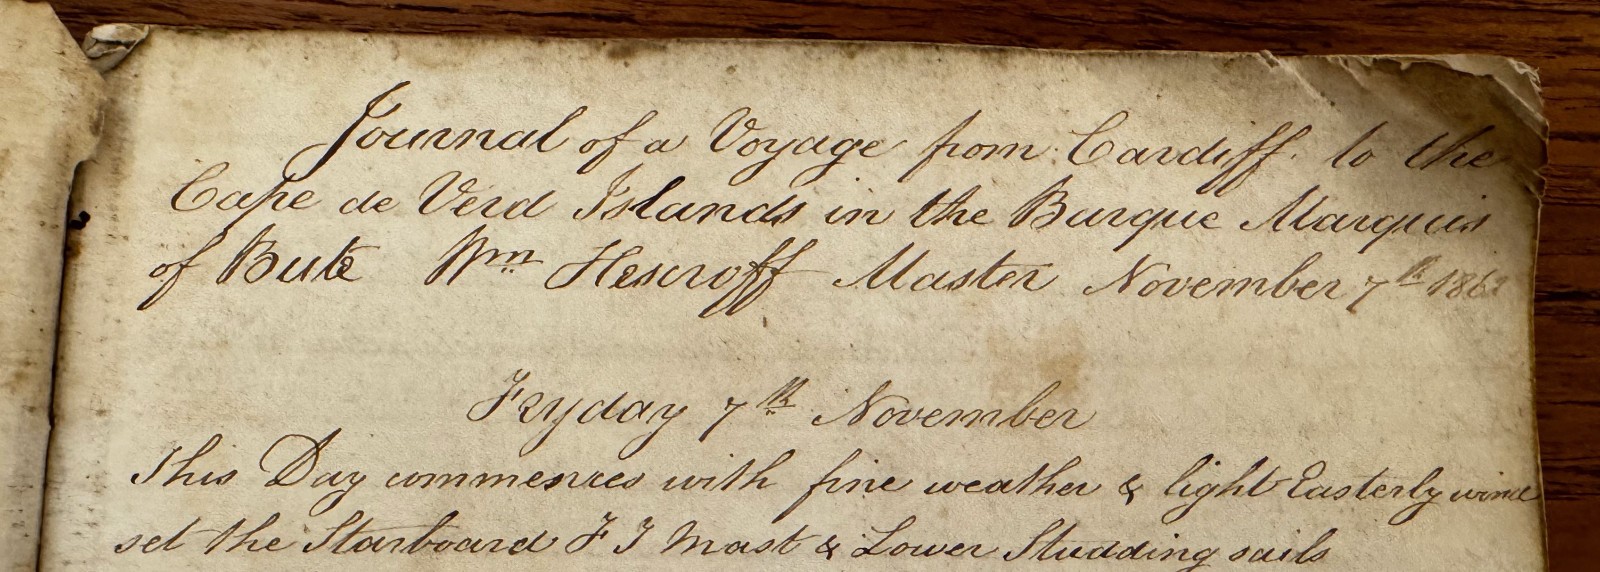 Journal of a Voyage from Cardiff to the
Cape de Verd Islands in the Barque Marquis
of Bute Wm Hescroff Master November 7th 1862
Fryday 7th November
This Day commences with fine weather & light Easterly wind
set the Starboard F T Mast & Lower Studding sails